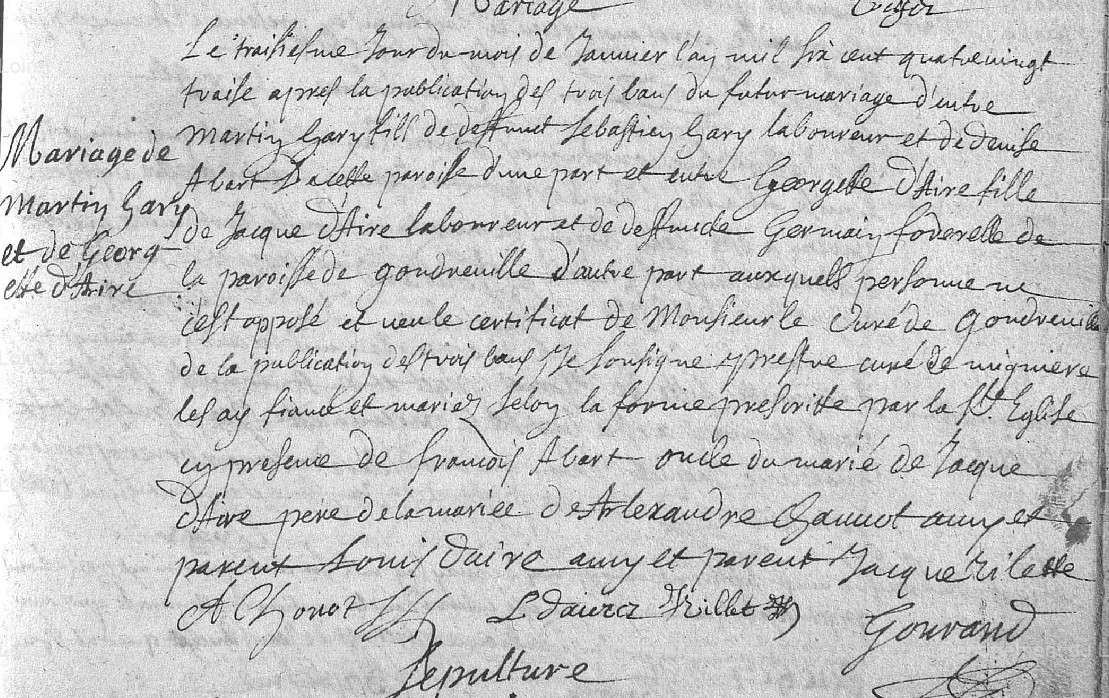 Mariage
Le traisiesme Jour du mois de Janvier l'an mil six cent quatrevingt
traise apres la publication des trois bans du futur mariage d'entre
Martin Gary fils de deffunct Sebastien Gary laboureur et de denise
Abart de cette paroisse d'une part et entre Georgette d'Aire fille
de Jacque d'Aire laboureur et de deffuncte Germain foderelle de
la paroisse de gondreville d'autre part auxquels personne ne
c'est opposé et veu le certificat de Monsieur le Curé de Gondreville
de la publication des trois bans Je sousigné prestre curé de migniere
les ay fiancé et mariez selon la forme prescritte par la Ste Eglise
en presence de francois Abart oncle du marié de Jacque
d'Aire pere de la mariée de Alexandre Chauvot amy et
parent Louis daire amy et parent Jacque Rilette
Mariage de
Martin Gary
et de Georg
ette d'Aire
A Chovot L daire Rillet Gouraud
Sepulture